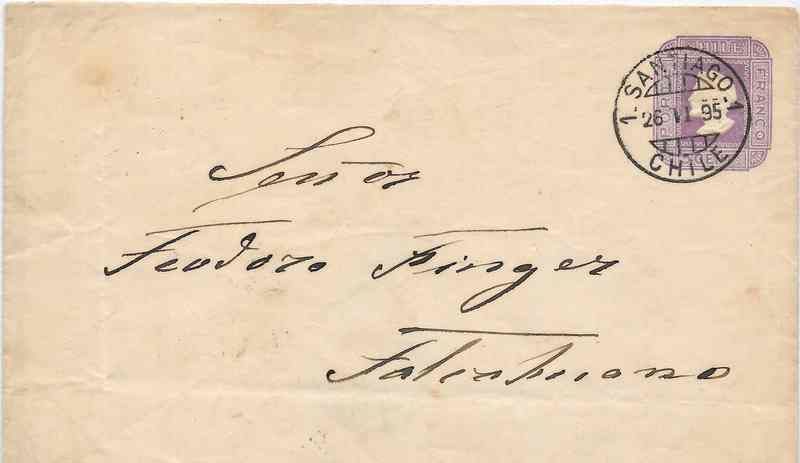 CHILE
FRANCO
1. SANTIAGO. 1
26 VI 95
CHILE
Señor
Teodoro Finger
Talcahuano